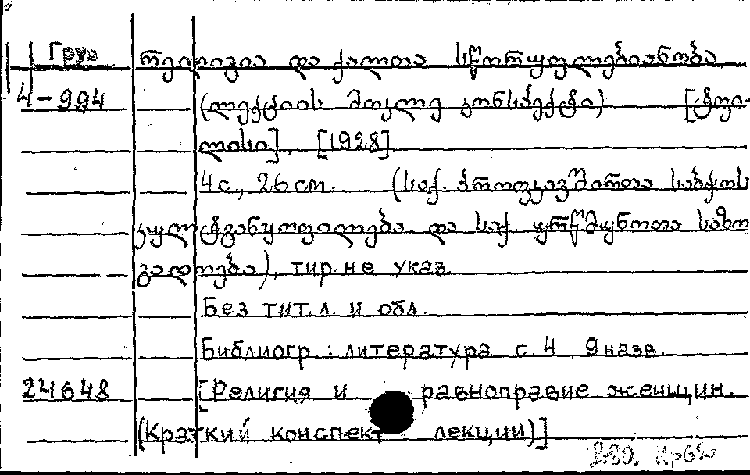 Груз რელიგია და ქალთა სწორუფლებიანობა
4-994 (ლექციის მოკლე კონსპექტი) [ტფი-
ლისი], [1928]
4 с., 26 см. (საქ. პროფკავშირთა საბჭოს
კულტგანყოფილება და საქ. ურწმუნოთა საზო-
გადოება), тир. не указ.
Без тит. л. и обл.
Библиогр.: литература с. 4 9 назв.
24648 [Религия и равноправие женщин.
(Краткий конспект лекции)]